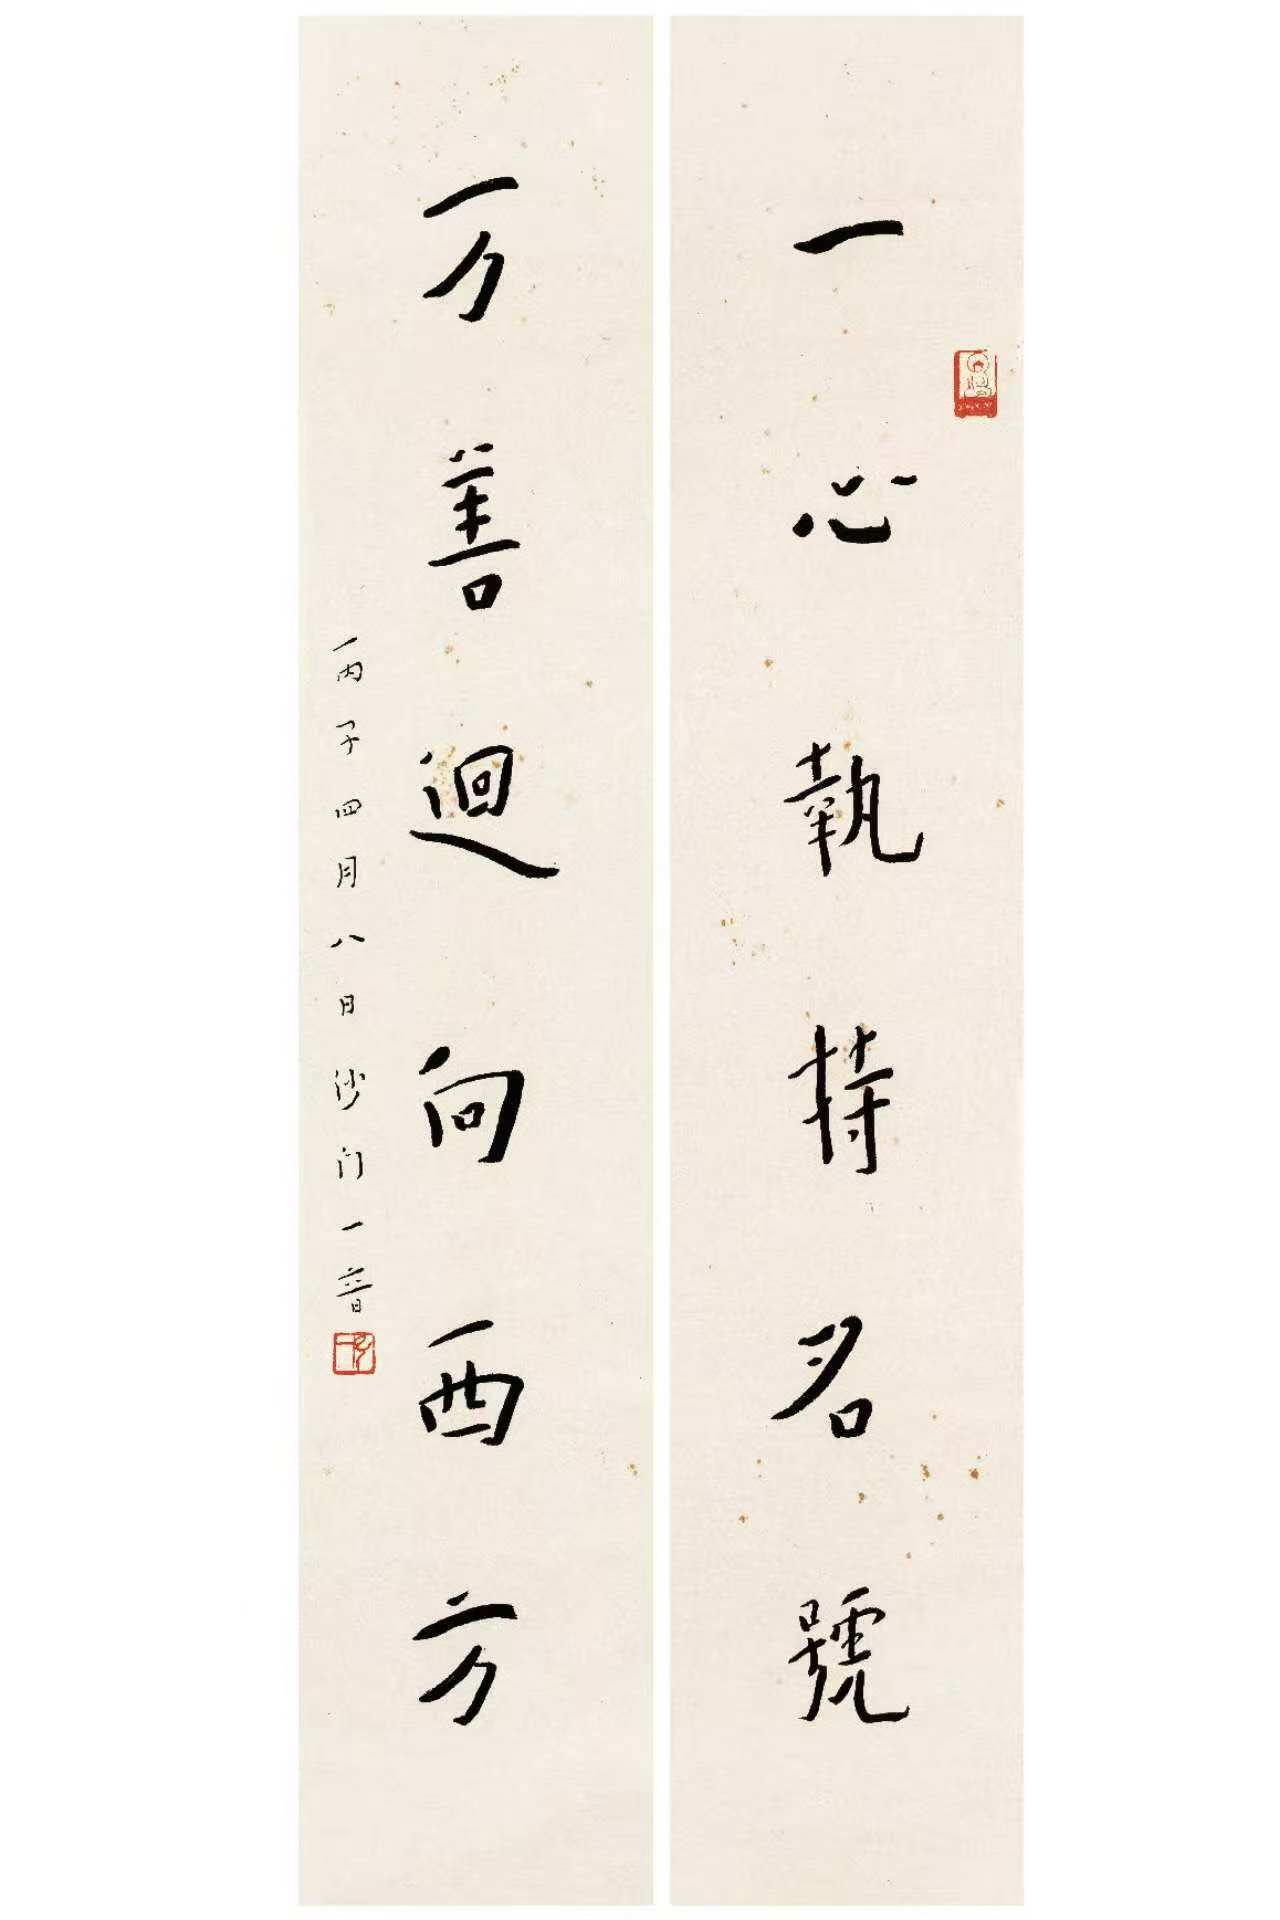 一心執持名號
万善迴向西方
丙子四月八日沙门一音
弘一